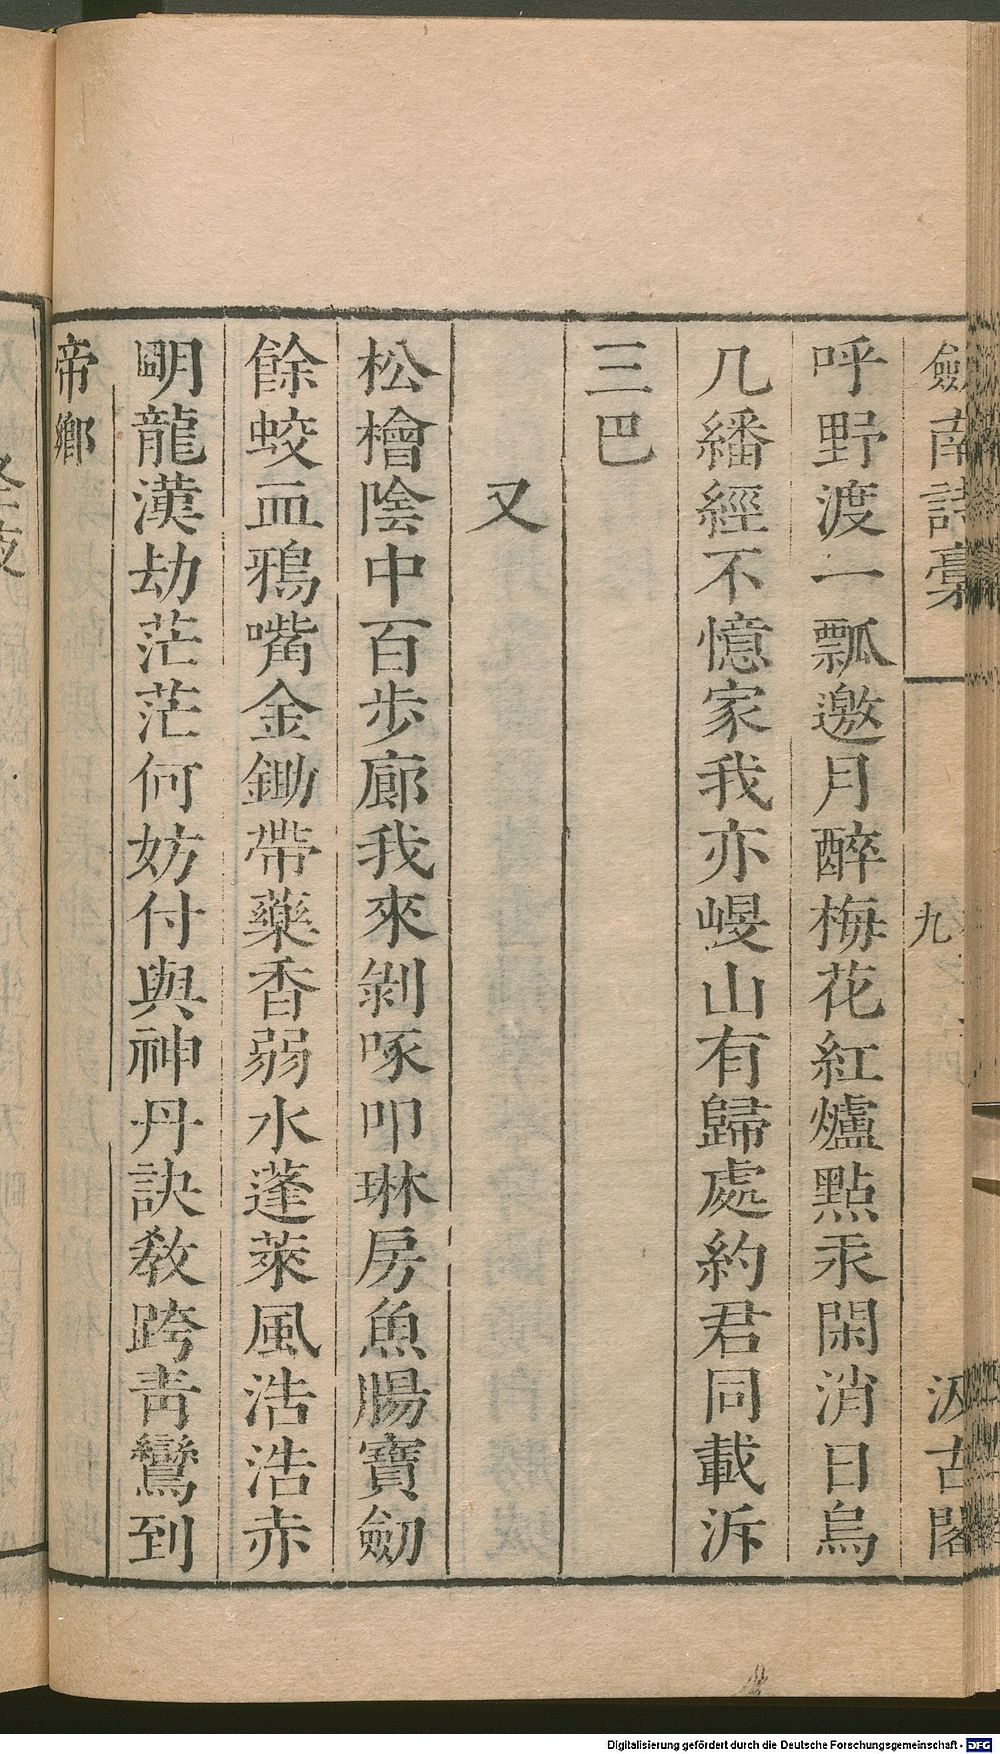 劍南詩稾
九
汲古閣
呼野渡一瓢邀月醉梅花紅爐點汞閑消日烏
几繙經不憶家我亦㟴山有歸處約君同載泝
三巴
又
松檜陰中百步廊我來剝啄叩琳房魚腸寶劒
餘蛟血鴉嘴金鋤帶藥香弱水蓬萊風浩浩赤
明龍漢劫茫茫何妨付與神丹訣敎跨靑鸞到
帝鄉
Digitalisierung gefördert durch die Deutsche Forschungsgemeinschaft - DFG